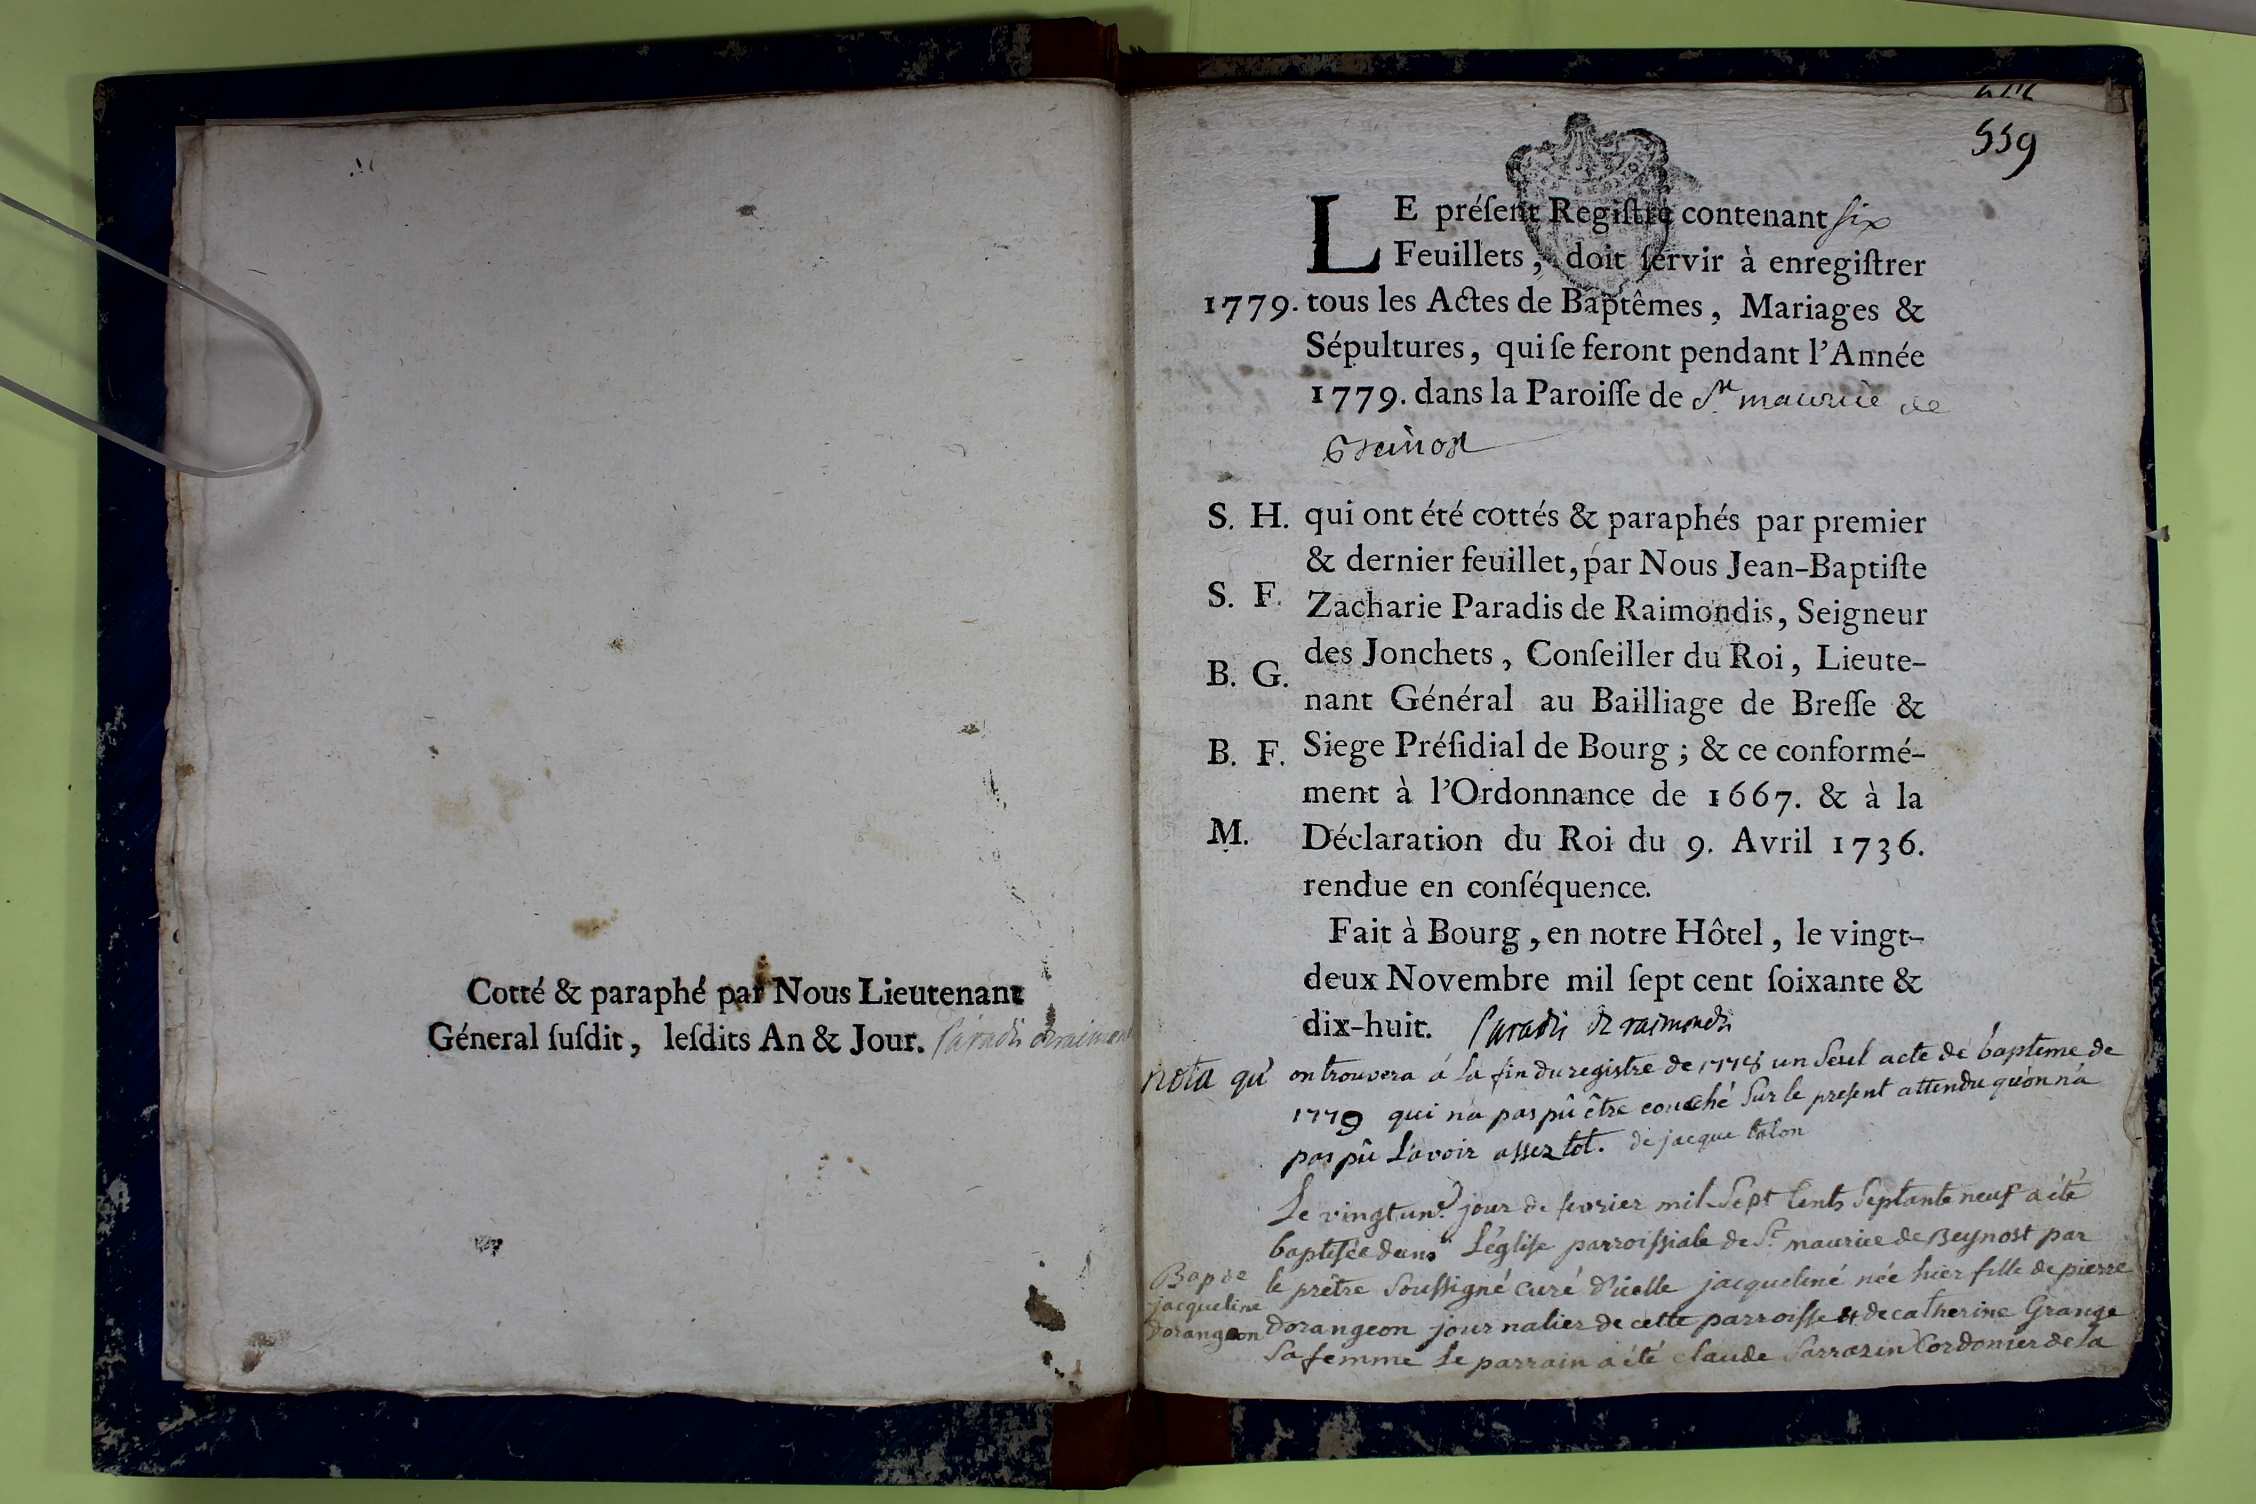 Cotté & paraphé par Nous Lieutenant
Géneral ſuſdit, leſdits An & Jour. Paradis de raimondis
559
LE préſent Regiſtre contenant six
Feuillets, doit ſervir à enregiſtrer
1779. tous les Actes de Baptêmes, Mariages &
Sépultures, qui ſe feront pendant l'Année
1779. dans la Paroiſſe de St maurice de
Beinost
S. H. qui ont été cottés & paraphés par premier
& dernier feuillet, par Nous Jean-Baptiſte
S. F. Zacharie Paradis de Raimondis, Seigneur
des Jonchets, Conſeiller du Roi, Lieute-
B. G. nant Général au Bailliage de Breſſe &
B. F. Siege Préſidial de Bourg; & ce conformé-
ment à l'Ordonnance de 1667. & à la
M. Déclaration du Roi du 9. Avril 1736.
rendue en conſéquence.
Fait à Bourg, en notre Hôtel, le vingt-
deux Novembre mil ſept cent ſoixante &
dix-huit. Paradis de raimondis
nota qu' on trouvera á la fin du registre de 1778 un seul acte de bapteme de
1779 qui na pas pû être couché sur le présent attendu qu'on n'a
pas pû l'avoir assez tot. de jacque talon
Le vingt un.e jour de fevrier mil sept cents septante neuf a été
baptisée dans l'église parroissiale de St maurice de Beynost par
Bap de le prêtre soussigné curé d'icelle jacqueliné née hier fille de pierre
jacqueline
dorangeon dorangeon journalier de cette parroisse et de catherine Grange
sa femme le parrain a été claude Sarrazin Cordonier de la